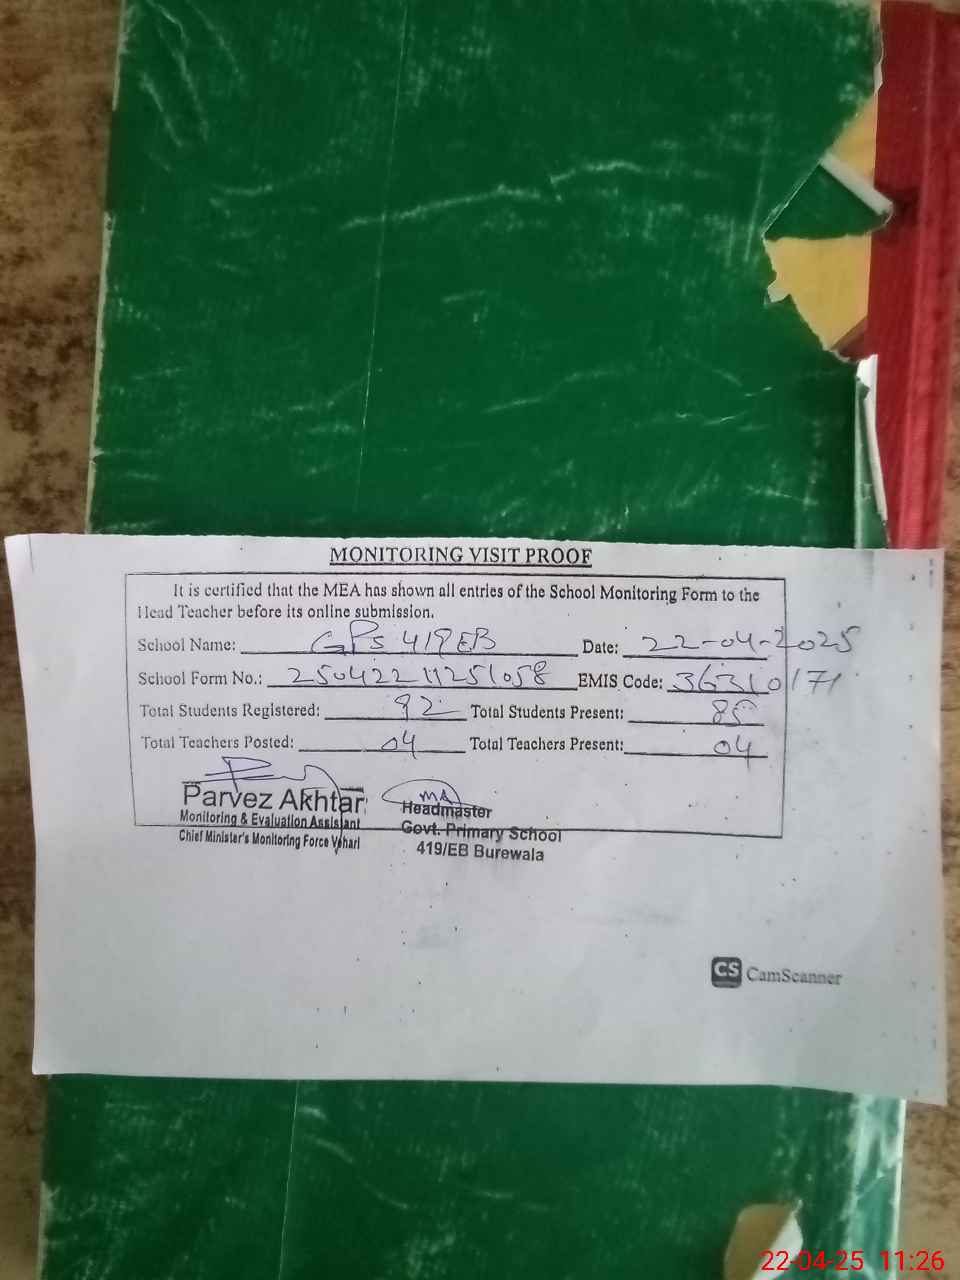 MONITORING VISIT PROOF
It is certified that the MEA has shown all entries of the School Monitoring Form to the
Head Teacher before its online submission.
School Name: GPS 419 EB Date: 22-04-2025
School Form No.: 25042211251058 EMIS Code: 36310171
Total Students Registered: 92 Total Students Present: 85
Total Teachers Posted: 04 Total Teachers Present: 04
Parvez Akhtar
Monitoring & Evaluation Assistant
Chief Minister's Monitoring Force Vehari
MA
Headmaster
Govt. Primary School
419/EB Burewala
CS CamScanner
22-04-25 11:26